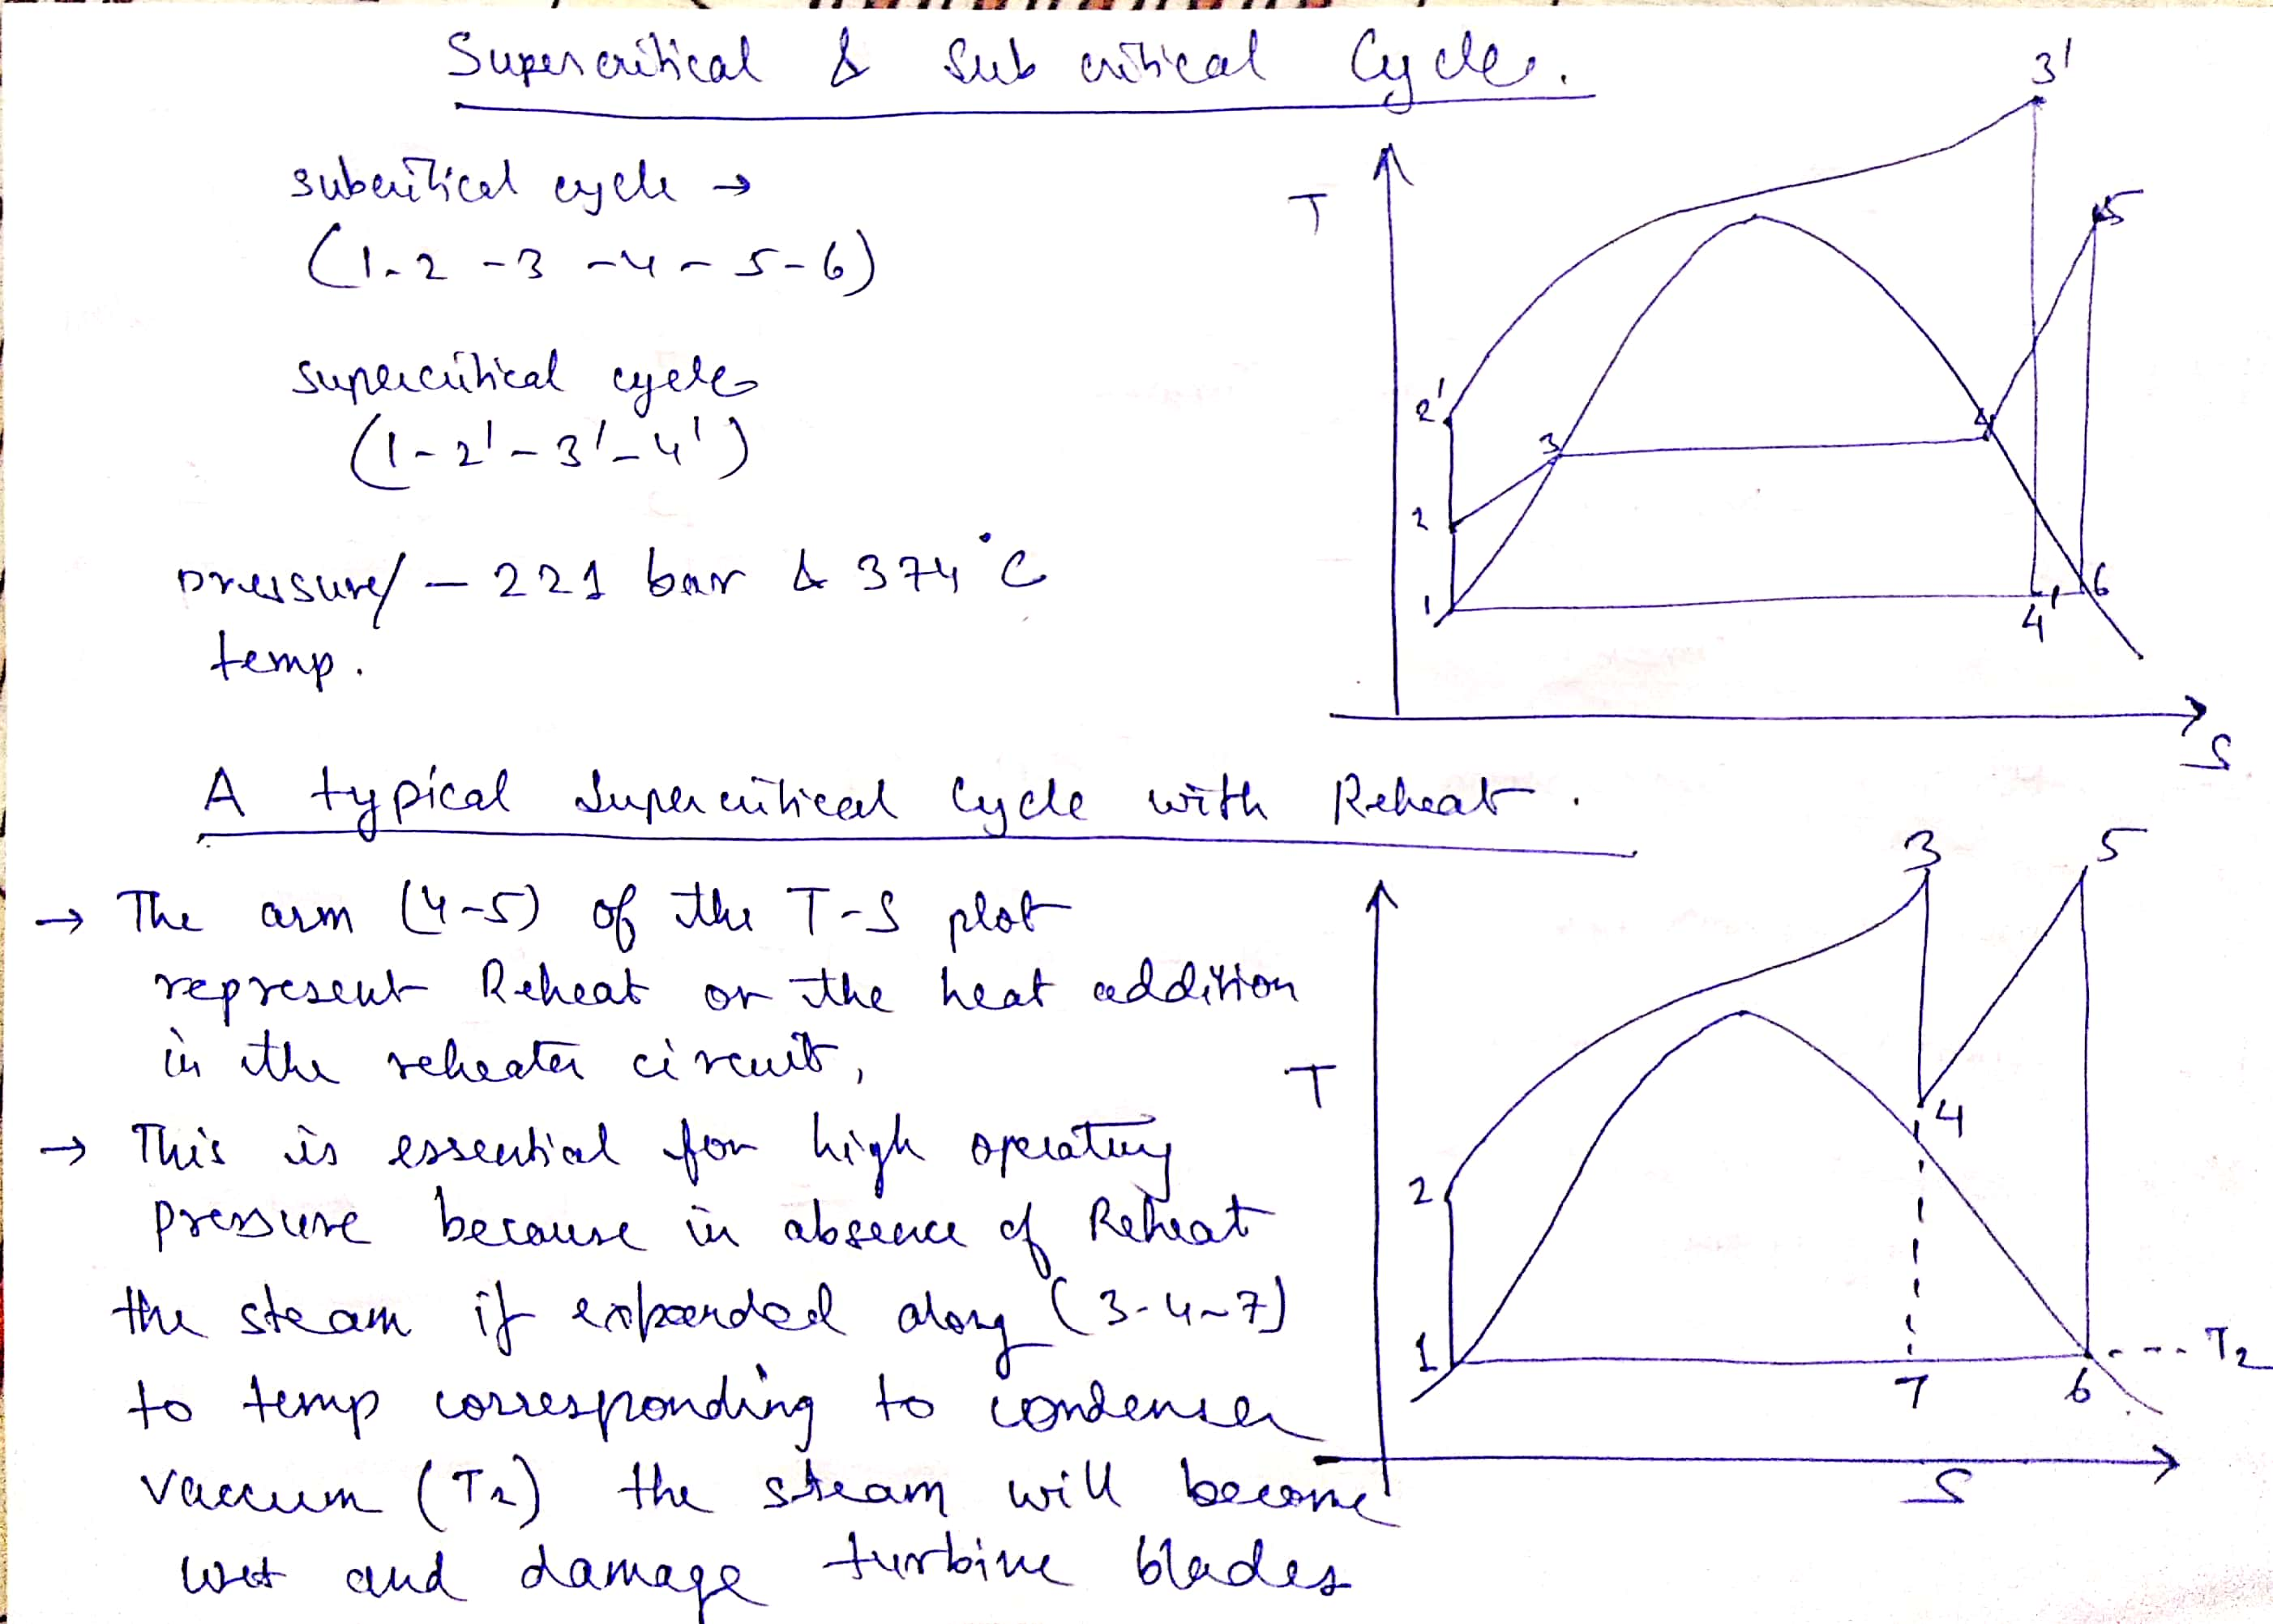 Supercritical & Sub critical Cycles.
subcritical cycle →
(1-2-3-4-5-6)
supercritical cycles
(1-2'-3'-4')
pressure/ - 221 bar & 374°C
temp.
T
3'
5
2'
3
4
2
1
4'
6
S
A typical Supercritical Cycle with Reheat.
→ The arm (4-5) of the T-S plot
represent Reheat or the heat addition
in the reheater circuit,
→ This is essential for high operating
pressure because in absence of Reheat
the steam if expanded along (3-4-7)
to temp corresponding to condenser
vaccum (T2) the steam will become
wet and damage turbine blades
3
5
T
4
2
1
7
6
T2
S